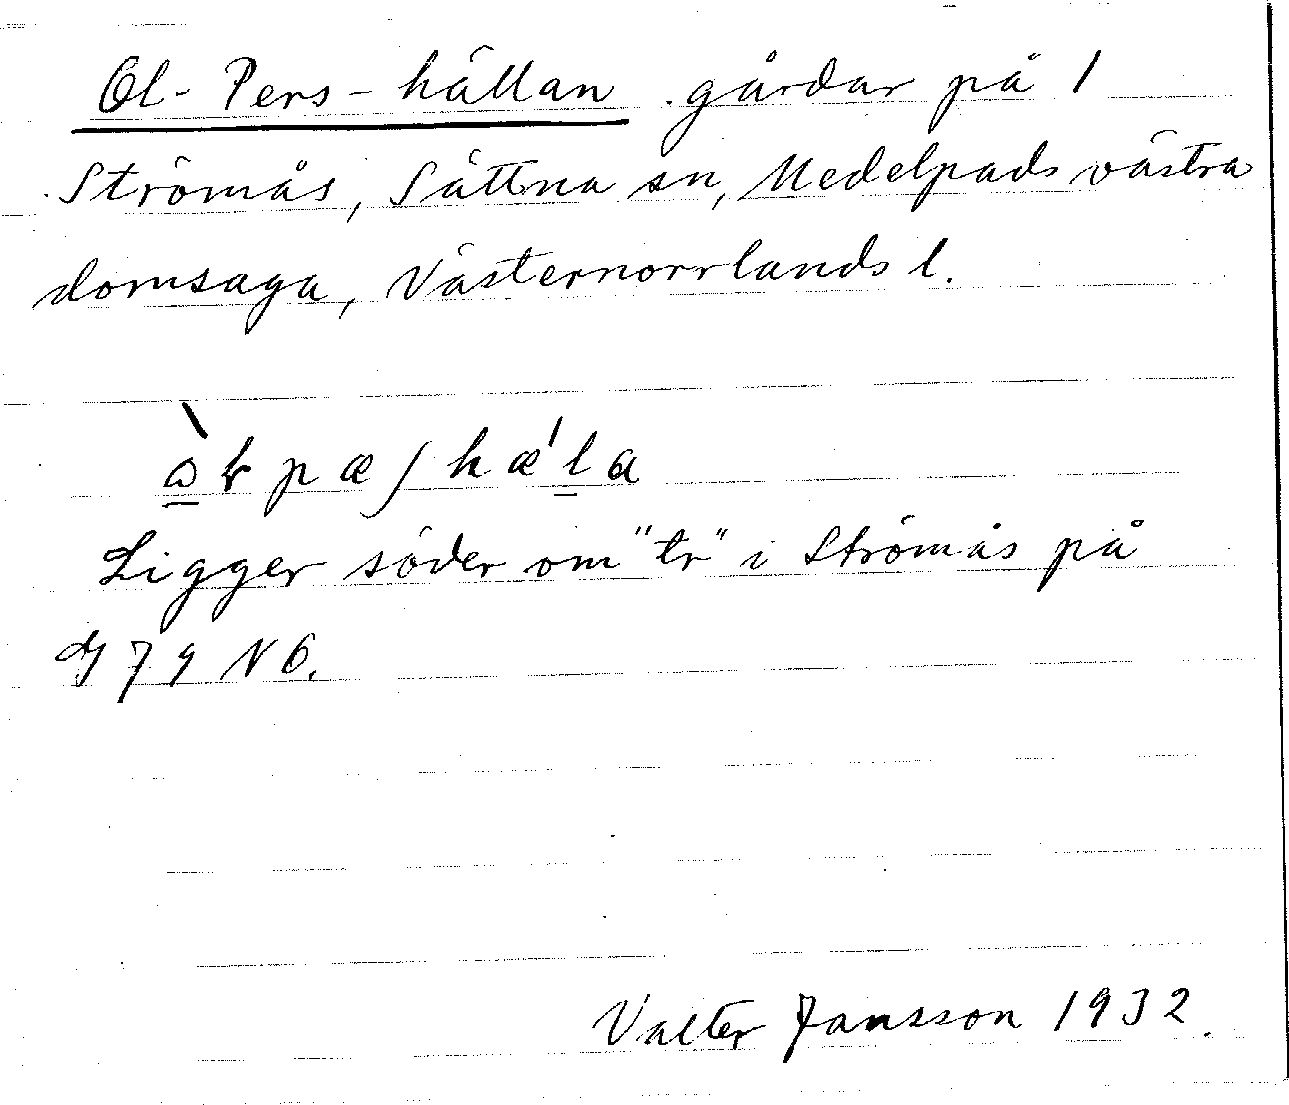 Ol-Pers-hällan gårdar på /
Strömås, Sättna sn, Medelpads västra
domsaga, Västernorrlands l.
Ligger söder om "tr" i Strömås på
79 N6.
Valter Jansson 1932.